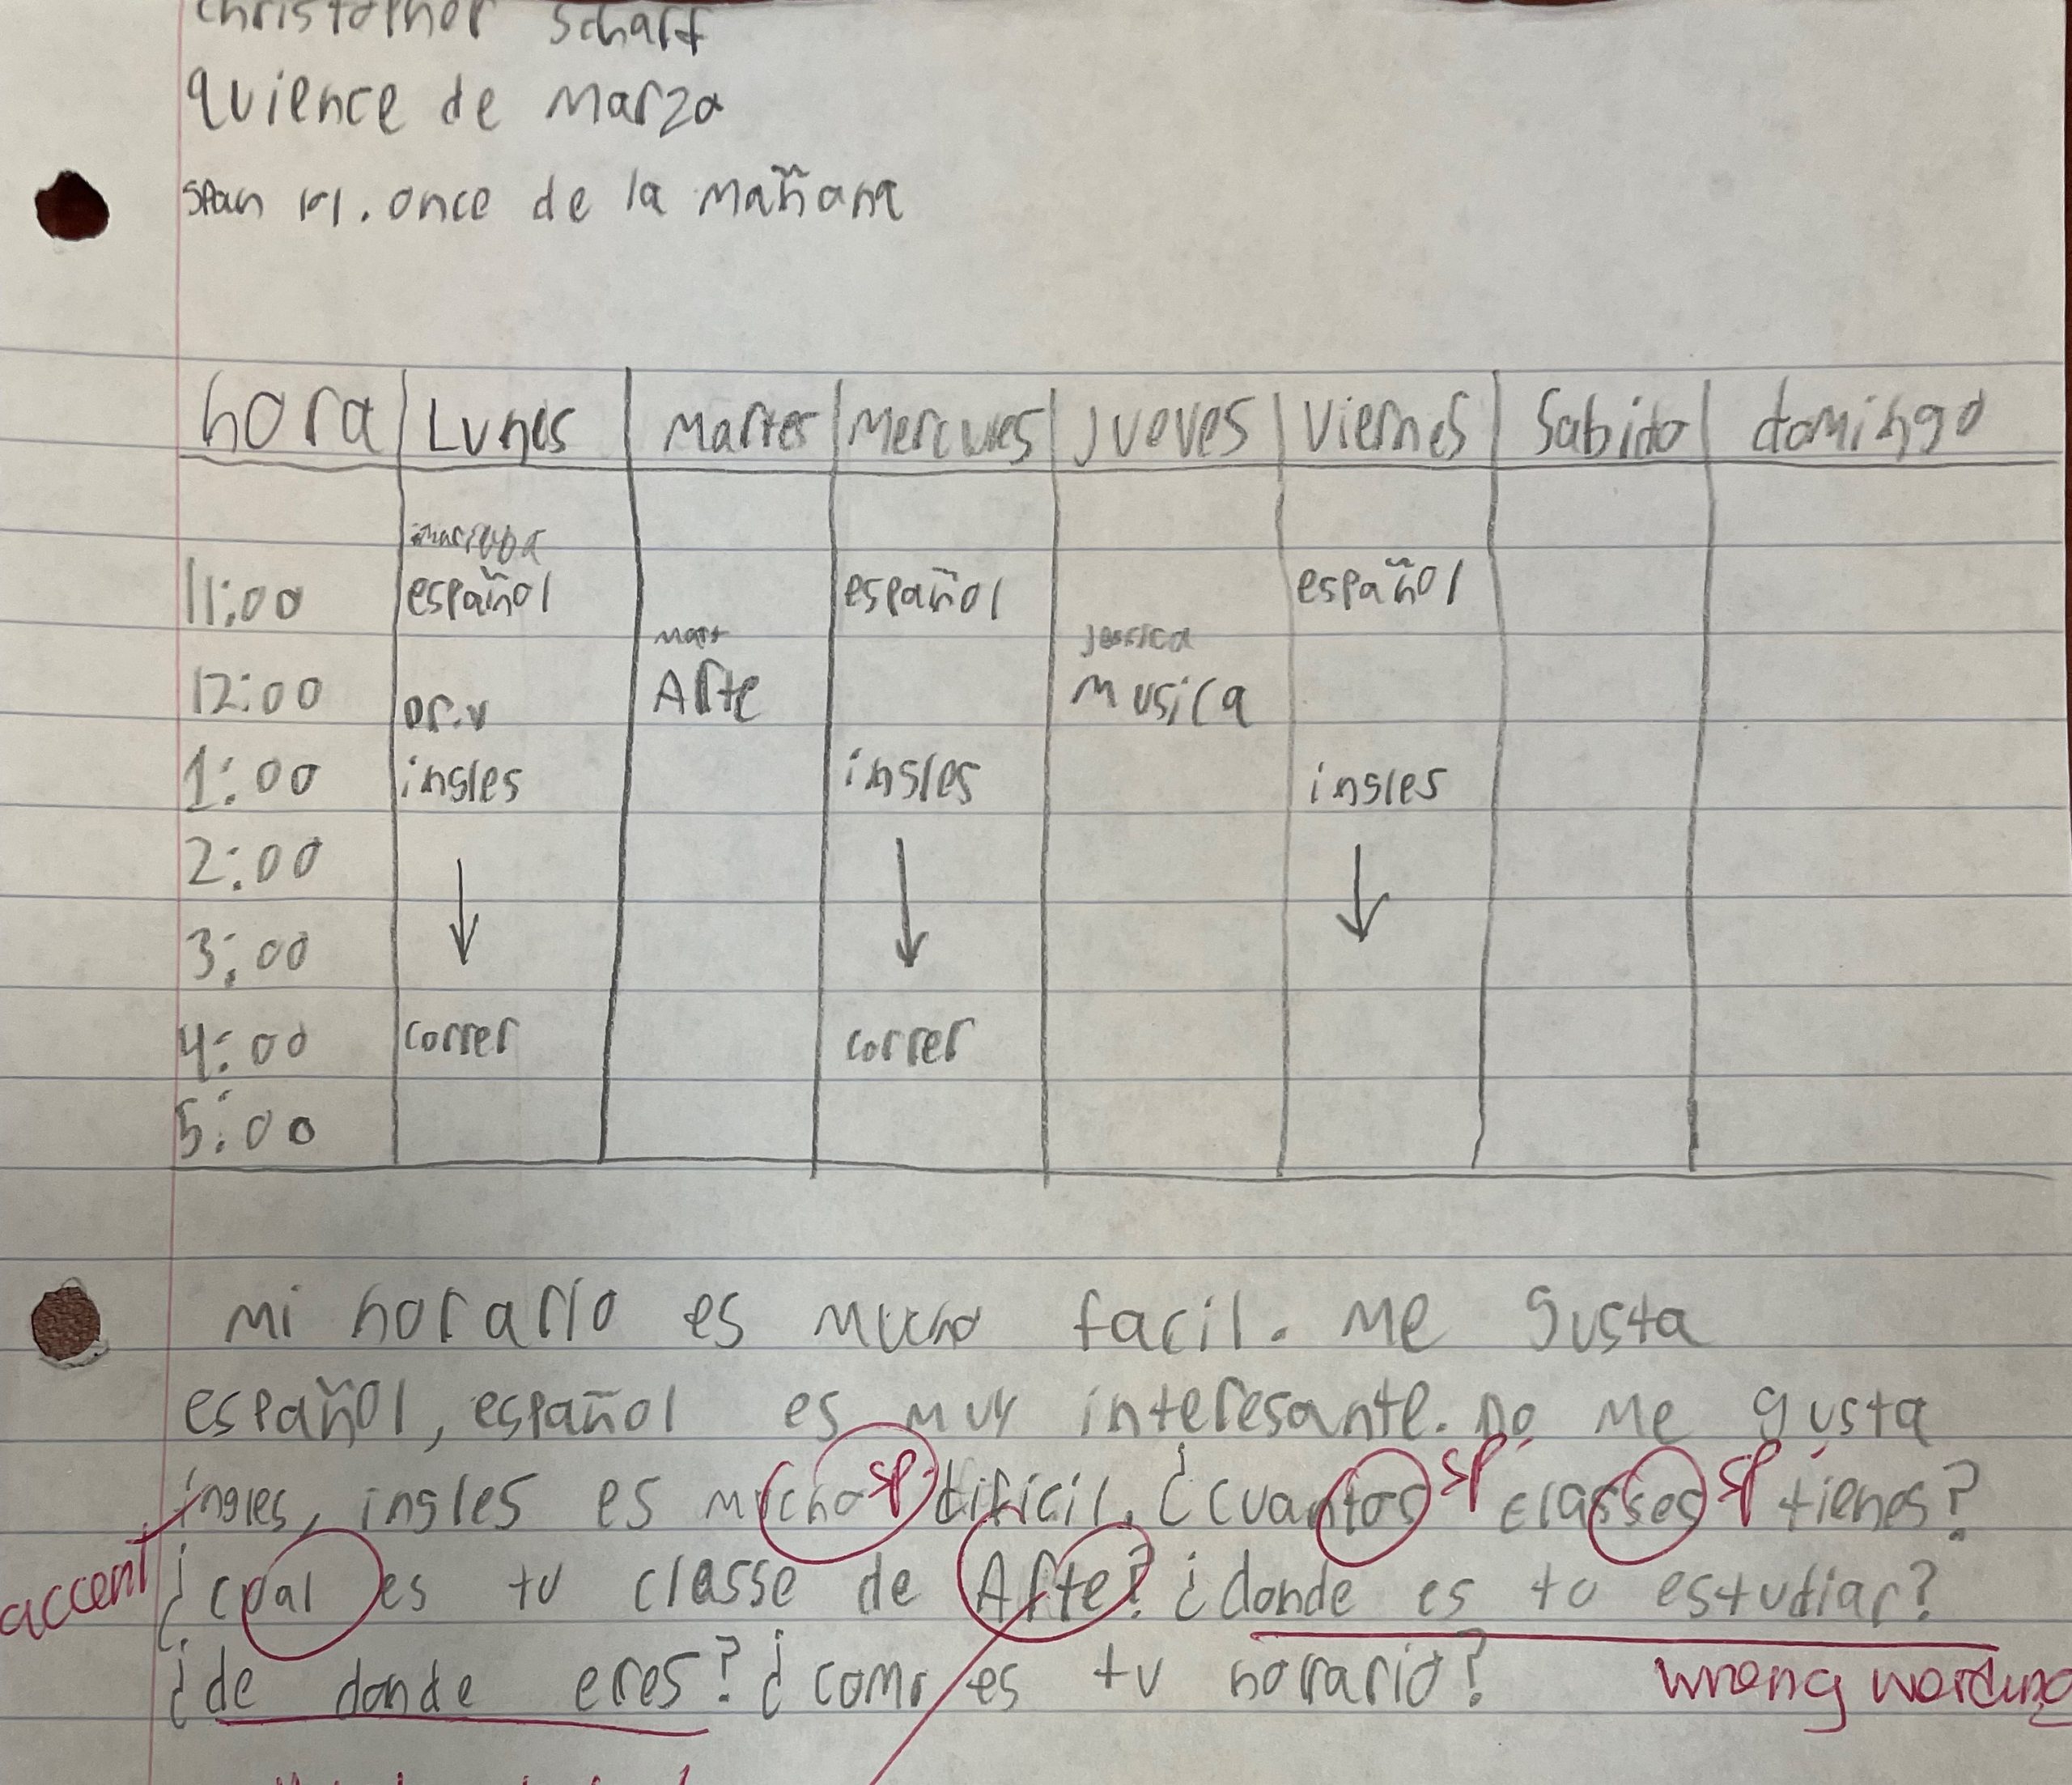 christopher Scharf
quience de Marza
span 101. once de la mañana
hora Lunes Martes Mercules Jueves Viernes Sabito domingo
11:00 español español español
Matt Jessica
12:00 Arte Musica
Dr.v
1:00 ingles ingles ingles
2:00
3:00
4:00 correr correr
5:00
mi horario es mucho facil. Me gusta
español, español es muy interesante. no me gusta
ingles, ingles es mucho sp dificil. ¿cuantos sp classes sp tienes?
accent ¿cual es tu classe de Arte? ¿donde es tu estudiar?
¿de donde eres? ¿como es tu horario? wrong wording